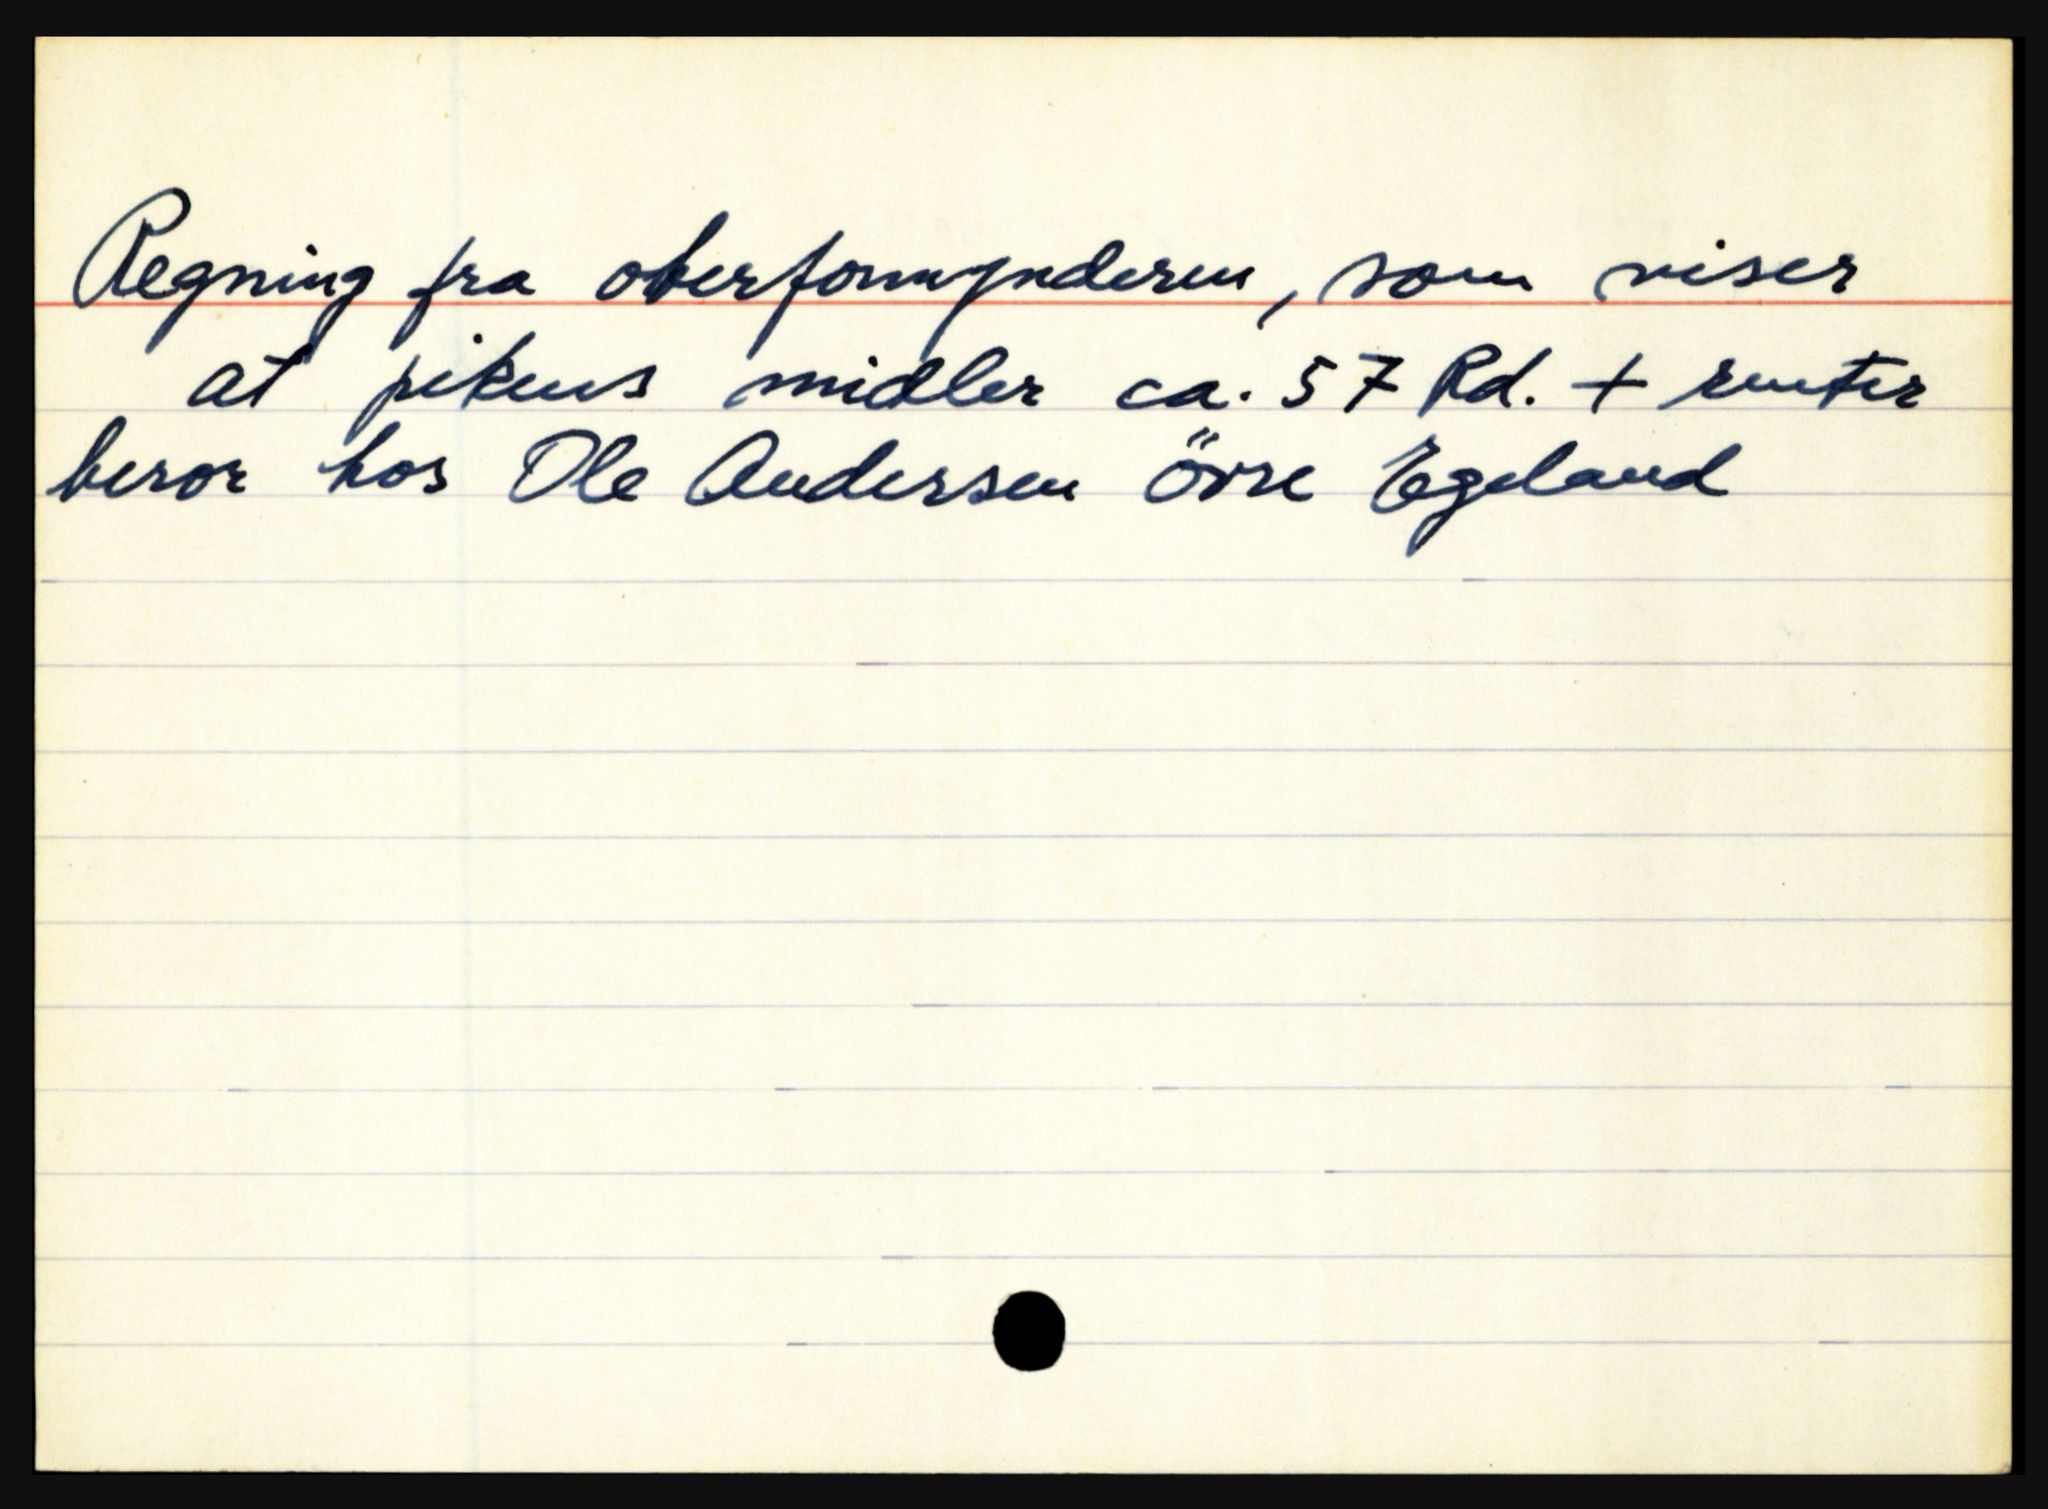 Regning fra oberformynderen, som viser
at pikens midler ca. 57 Rd. + renter
beror hos Ole Andersen övre Egeland